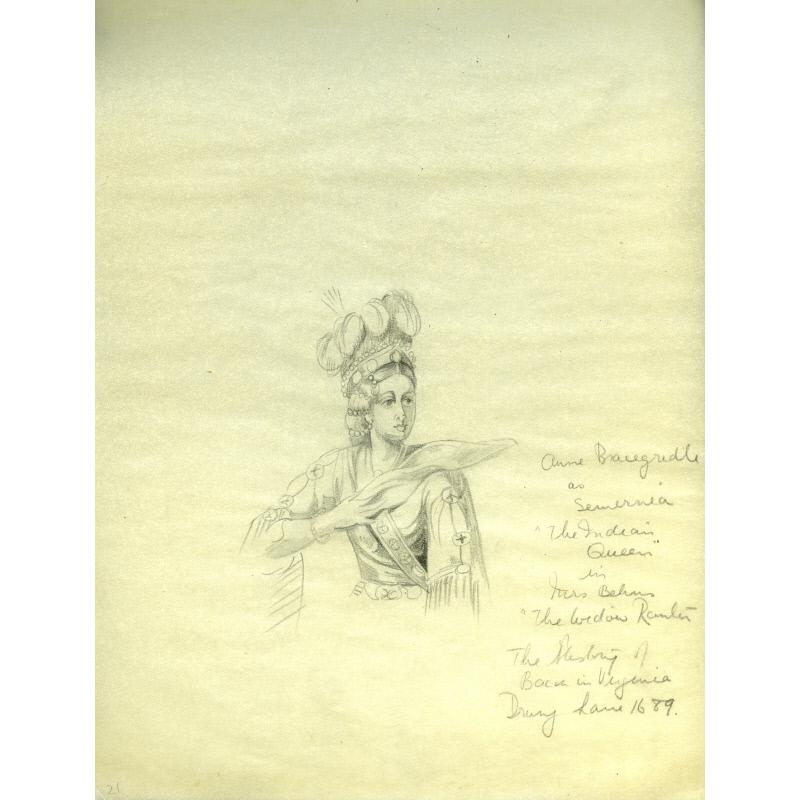 Anne Bracegirdle
as
Semernia
"The Indian
Queen"
in
Mrs Behns
"The Widow Ranter
The History of
Bacon in Virginia
Drury Lane 1689.
21